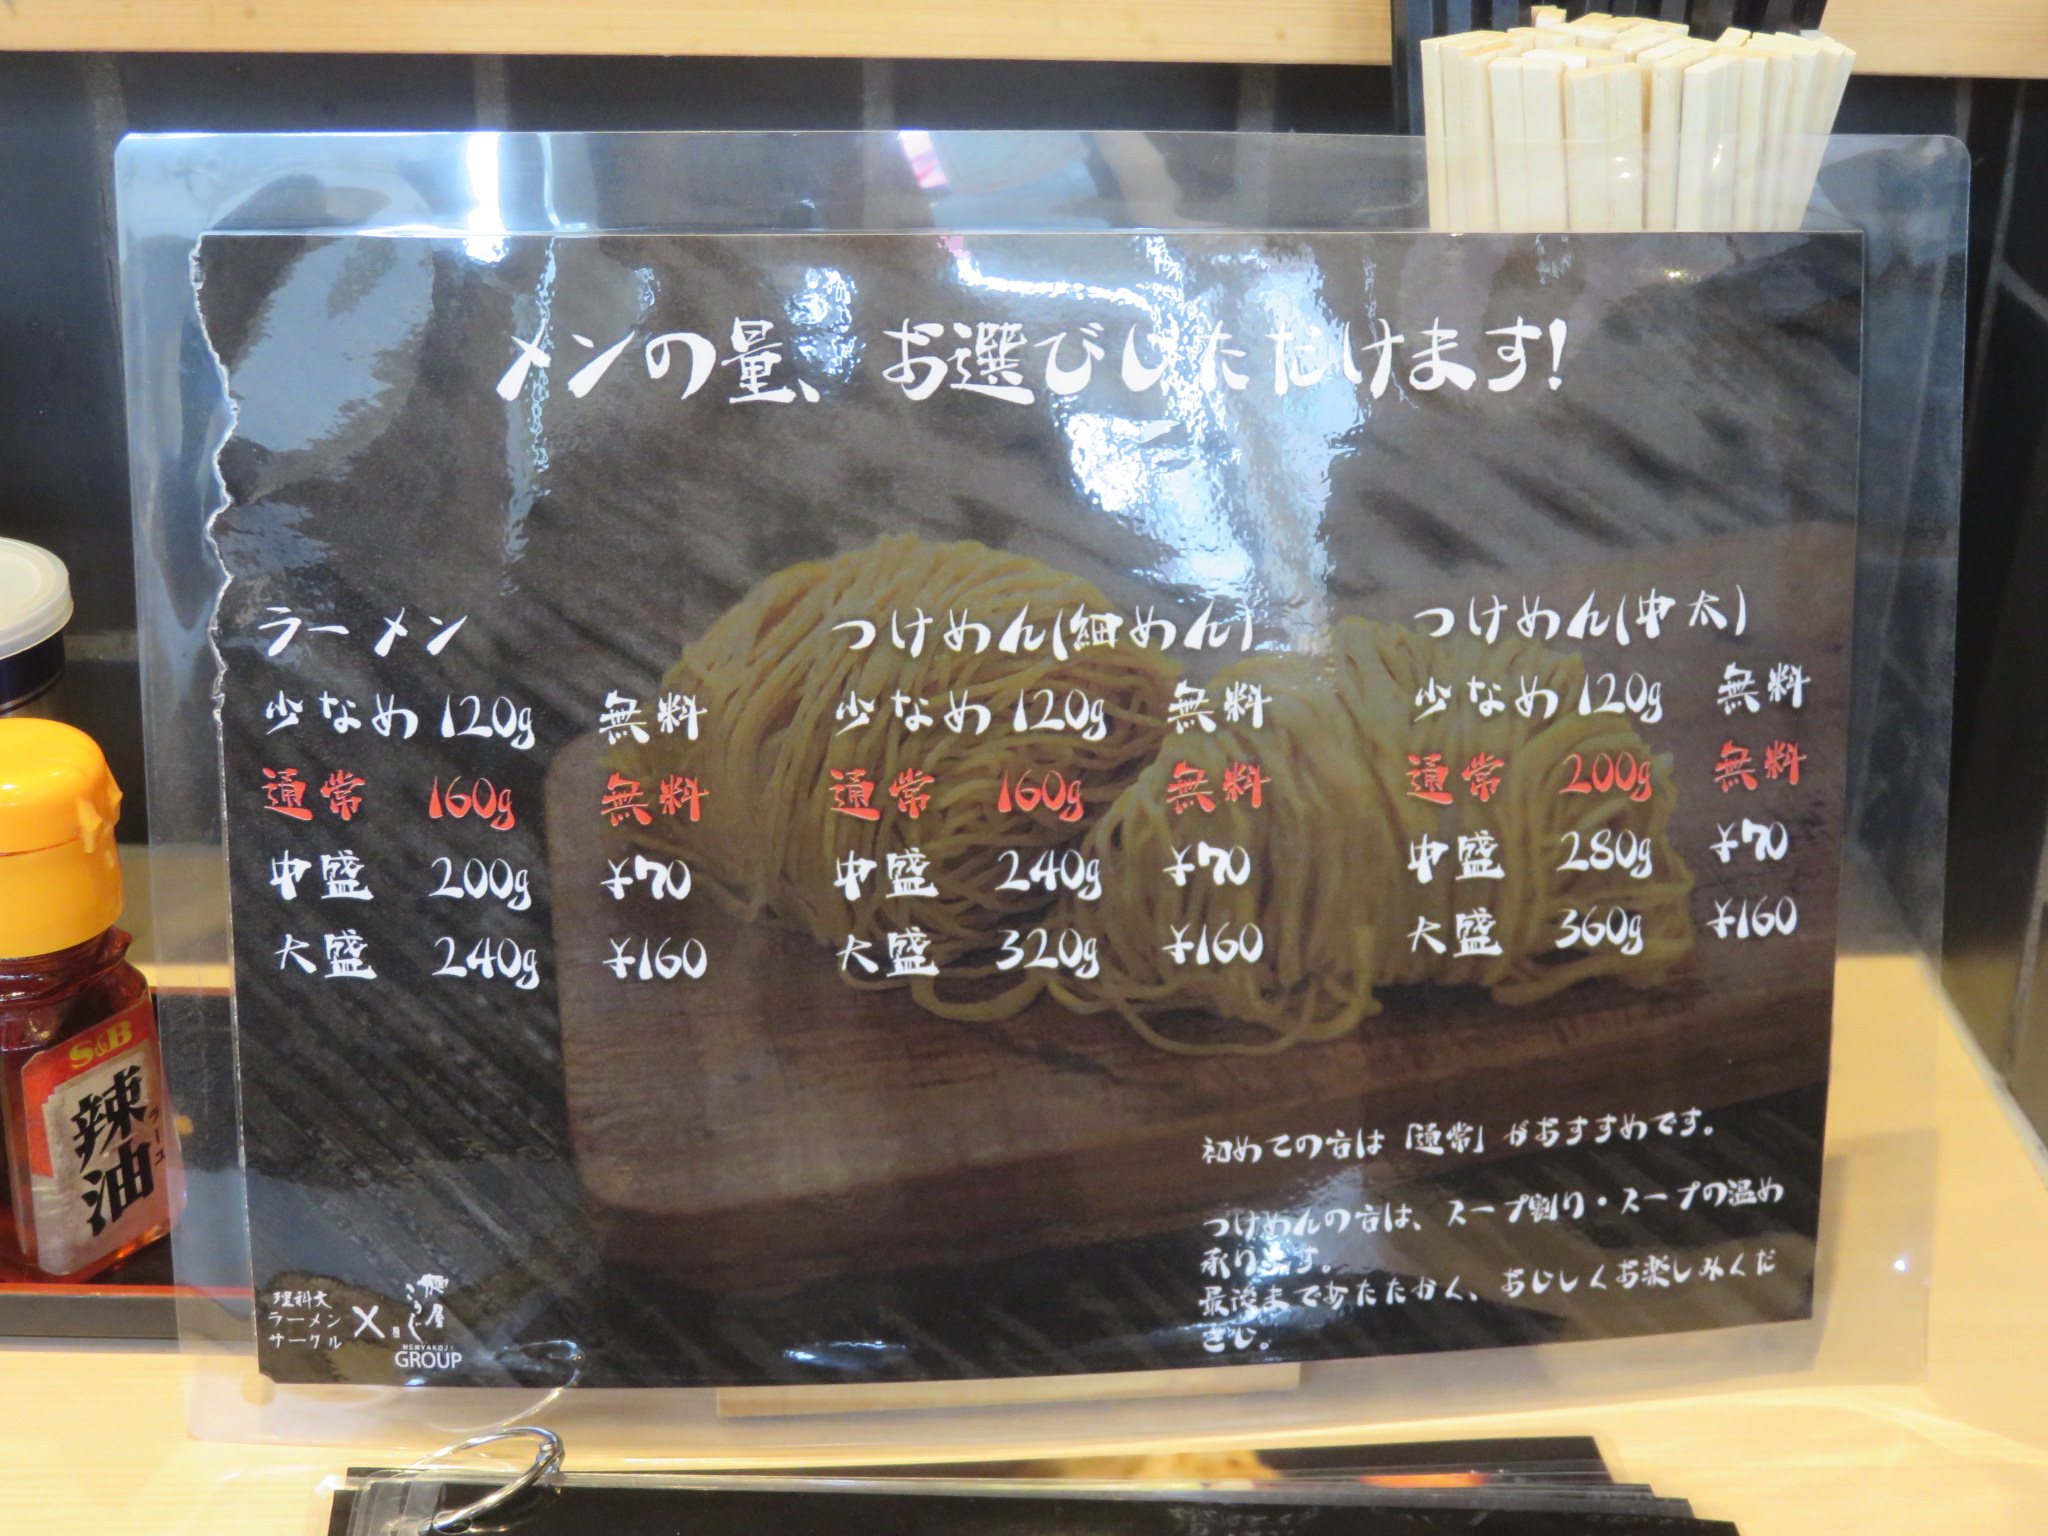 メンの量、お選びいただけます!
ラーメン
少なめ 120g 無料
通常 160g 無料
中盛 200g ¥70
大盛 240g ¥160
つけめん(細めん)
少なめ 120g 無料
通常 160g 無料
中盛 240g ¥70
大盛 320g ¥160
つけめん(中太)
少なめ 120g 無料
通常 200g 無料
中盛 280g ¥70
大盛 360g ¥160
初めての方は「通常」がおすすめです。
つけめんの方は、スープ割り・スープの温め
承ります。
最後まであたたかく、おいしくお楽しみくだ
さい。
理科大
ラーメン
サークル
×
麺屋
こうじ
MENYAKOJI
GROUP
S&B
辣油
ラーユ